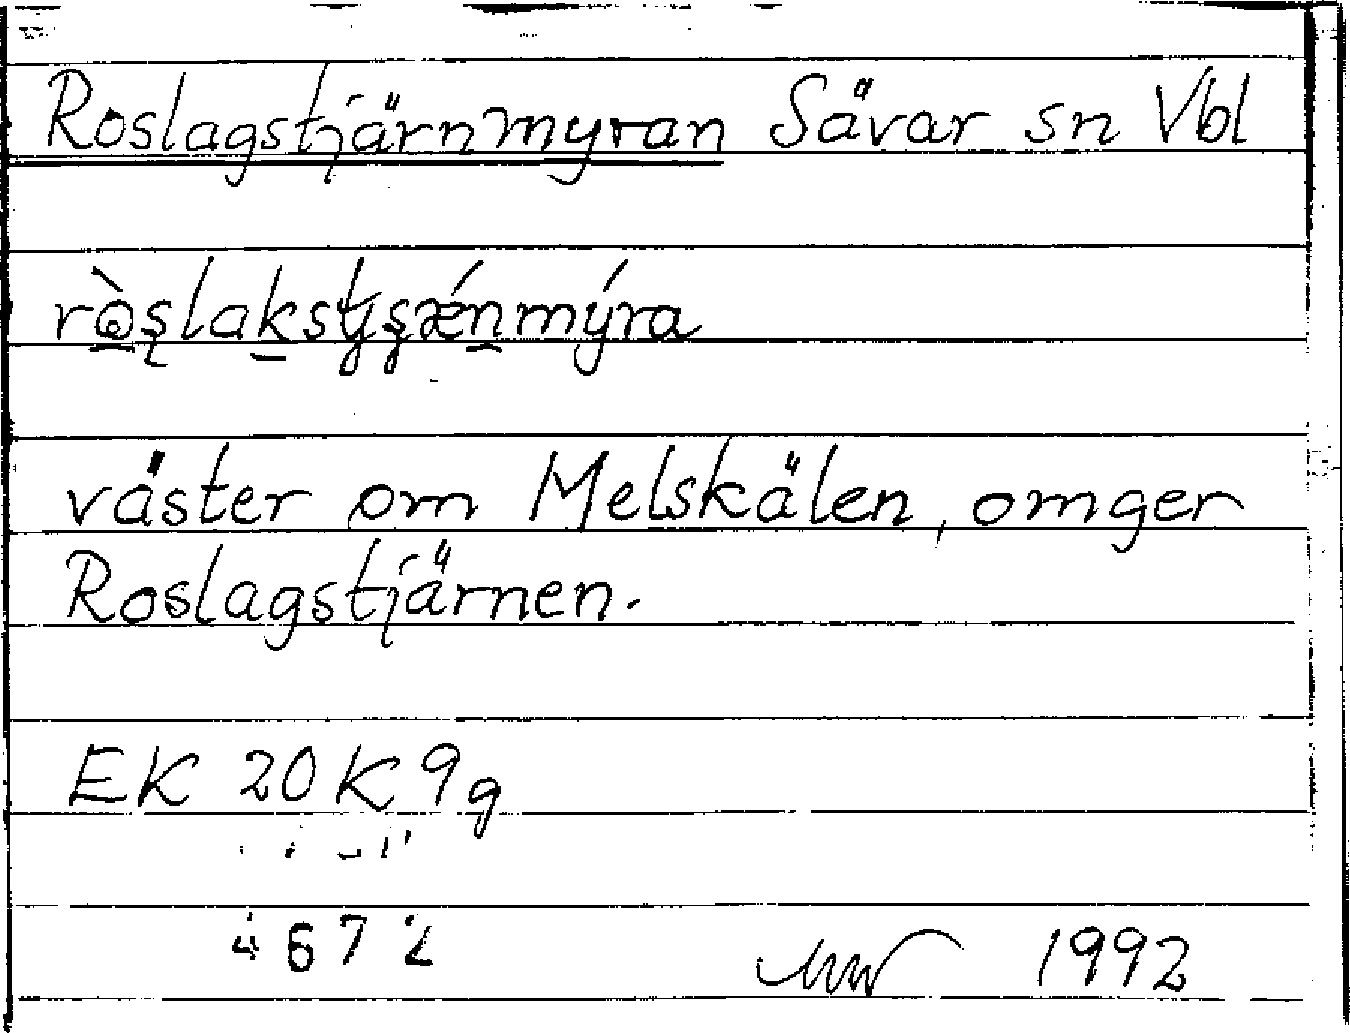 Roslagstjärnmyran Sävar sn Vbl
väster om Melskälen, omger
Roslagstjärnen.
EK 20 K 9g
4672 1992